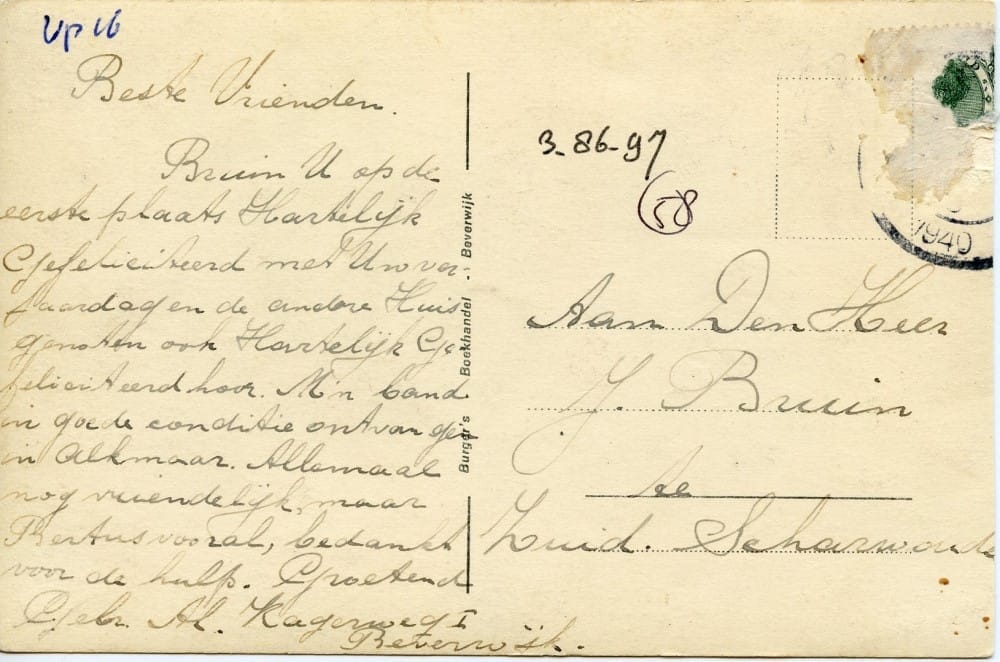 Up 16
Beste Vrienden.
Bruin U op de
eerste plaats Hartelijk
Gefeliciteerd met Uw ver-
jaardag en de andere Huis
genoten ook Hartelijk Ge
feliciteerd hoor. M'n band
in goede conditie ontvangen
in Alkmaar. Allemaal
nog vriendelijk, maar
Bertus vooral, bedankt
voor de hulp. Groetend
Gebr. Al. Kagerweg I
Beverwijk.
Burger's Boekhandel - Beverwijk
3-86-97
58
1940
Aan Den Heer
J. Bruin
te
Zuid. Scharwoude